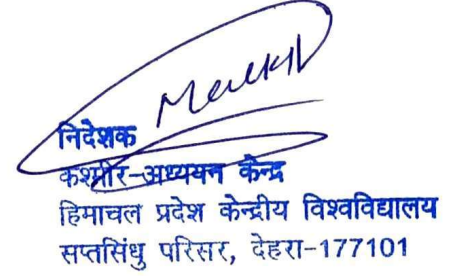 निदेशक
कश्मीर-अध्ययन केन्द्र
हिमाचल प्रदेश केन्द्रीय विश्वविद्यालय
सप्तसिंधु परिसर, देहरा-177101